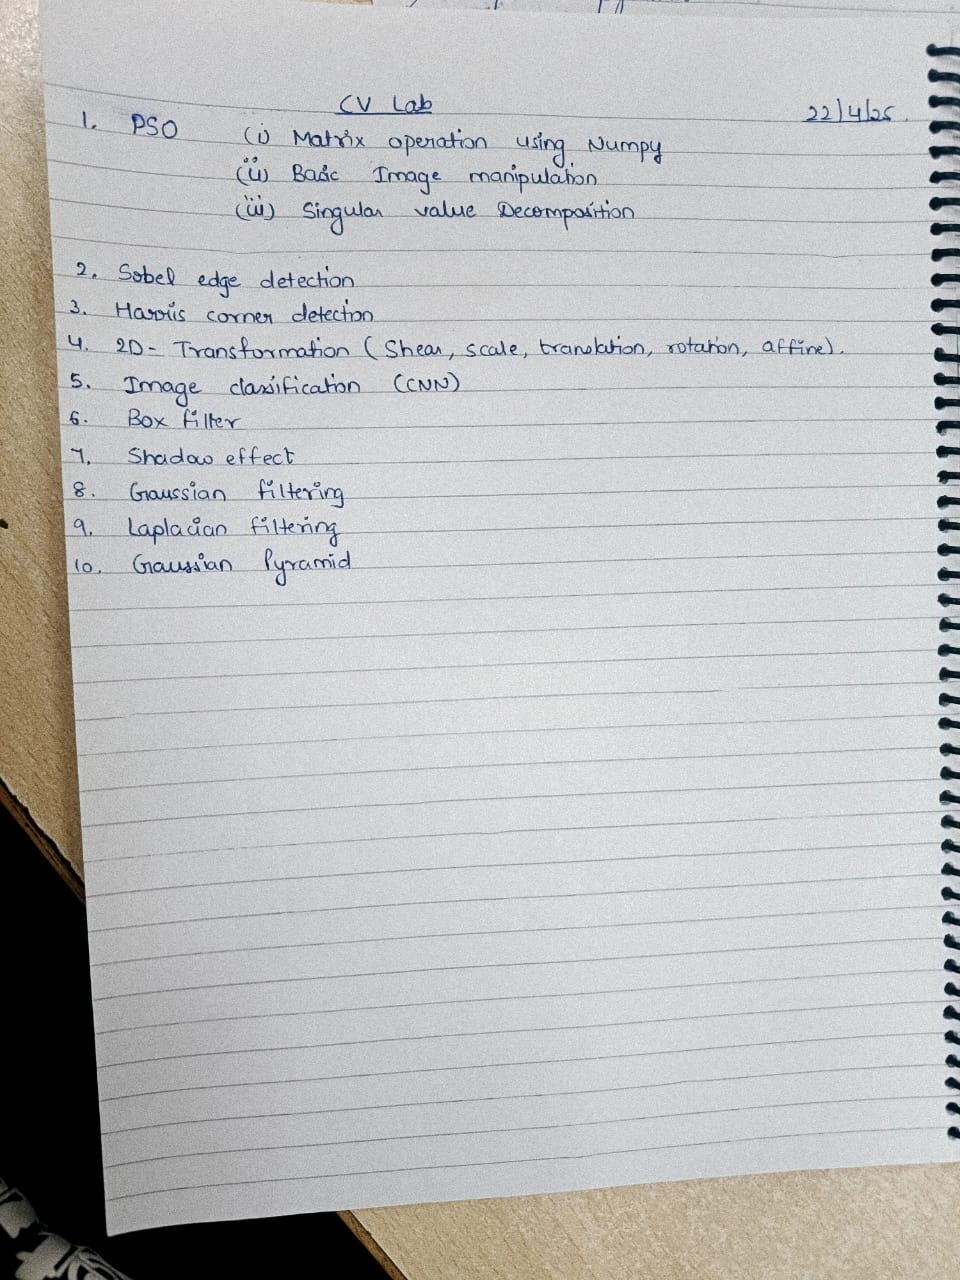 CV Lab
22/4/25.
1. PSO (i) Matrix operation using Numpy
(ii) Basic Image manipulation
(iii) Singular value Decomposition
2. Sobel edge detection
3. Harris corner detection
4. 2D- Transformation (Shear, scale, translation, rotation, affine).
5. Image classification (CNN)
6. Box filter
7. Shadow effect
8. Gaussian filtering
9. Laplacian filtering
10. Gaussian Pyramid